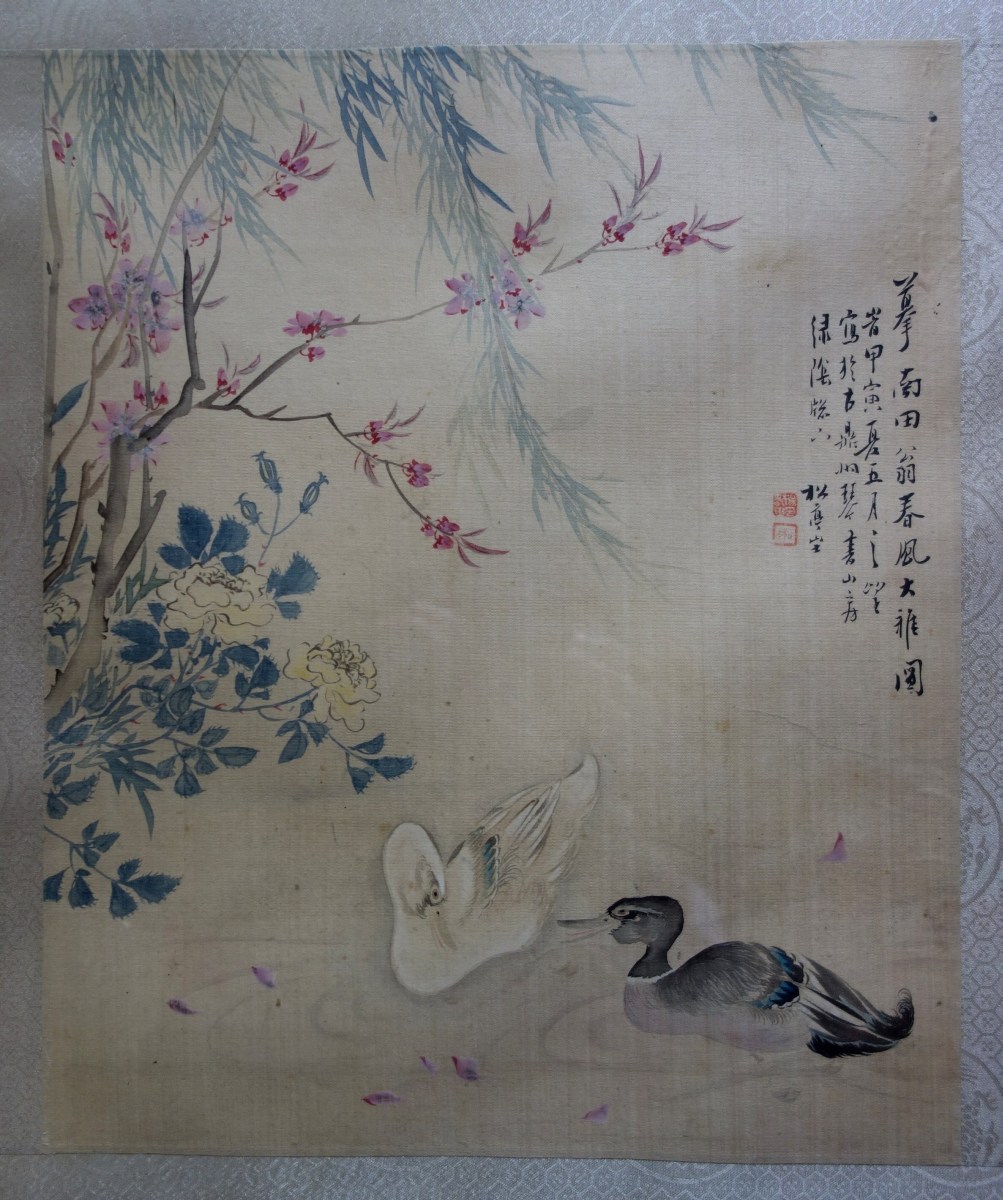 摹南田翁春風大雅圖
時甲寅夏五月之望
寫於古鼎州琴書山房
緑陰窓下 松亭